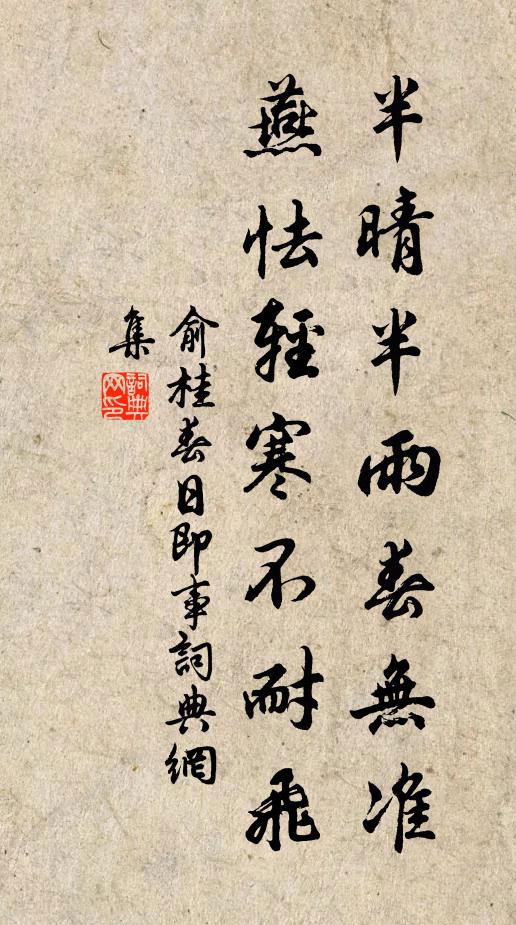 半晴半雨春無准
燕怯輕寒不耐飛
俞桂春日即事詞典網
集
詞典
网印